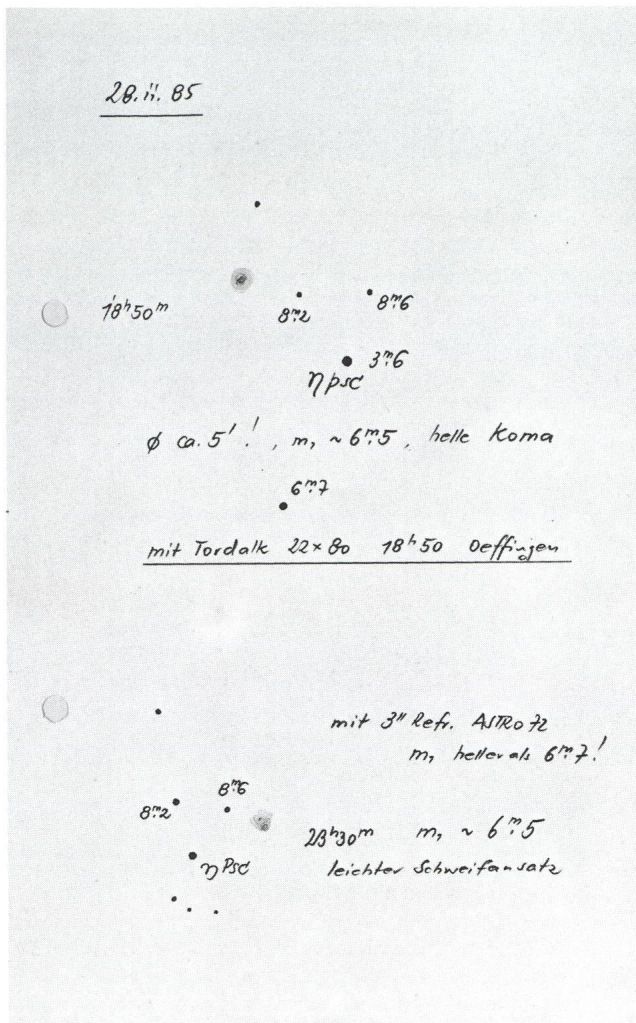 28.11.85
18ʰ50ᵐ
8ᵐ.2
8ᵐ.6
3ᵐ.6
η psc
ø ca. 5'! , m₁ ~ 6ᵐ.5 , helle Koma
6ᵐ.7
mit Tordalk 22×80 18ʰ50 Oeffingen
mit 3" Refr. ASTRO 72
m₁ heller als 6ᵐ.7!
8ᵐ.6
8ᵐ.2
23ʰ30ᵐ m₁ ~ 6ᵐ.5
η Psc
leichter Schweifansatz